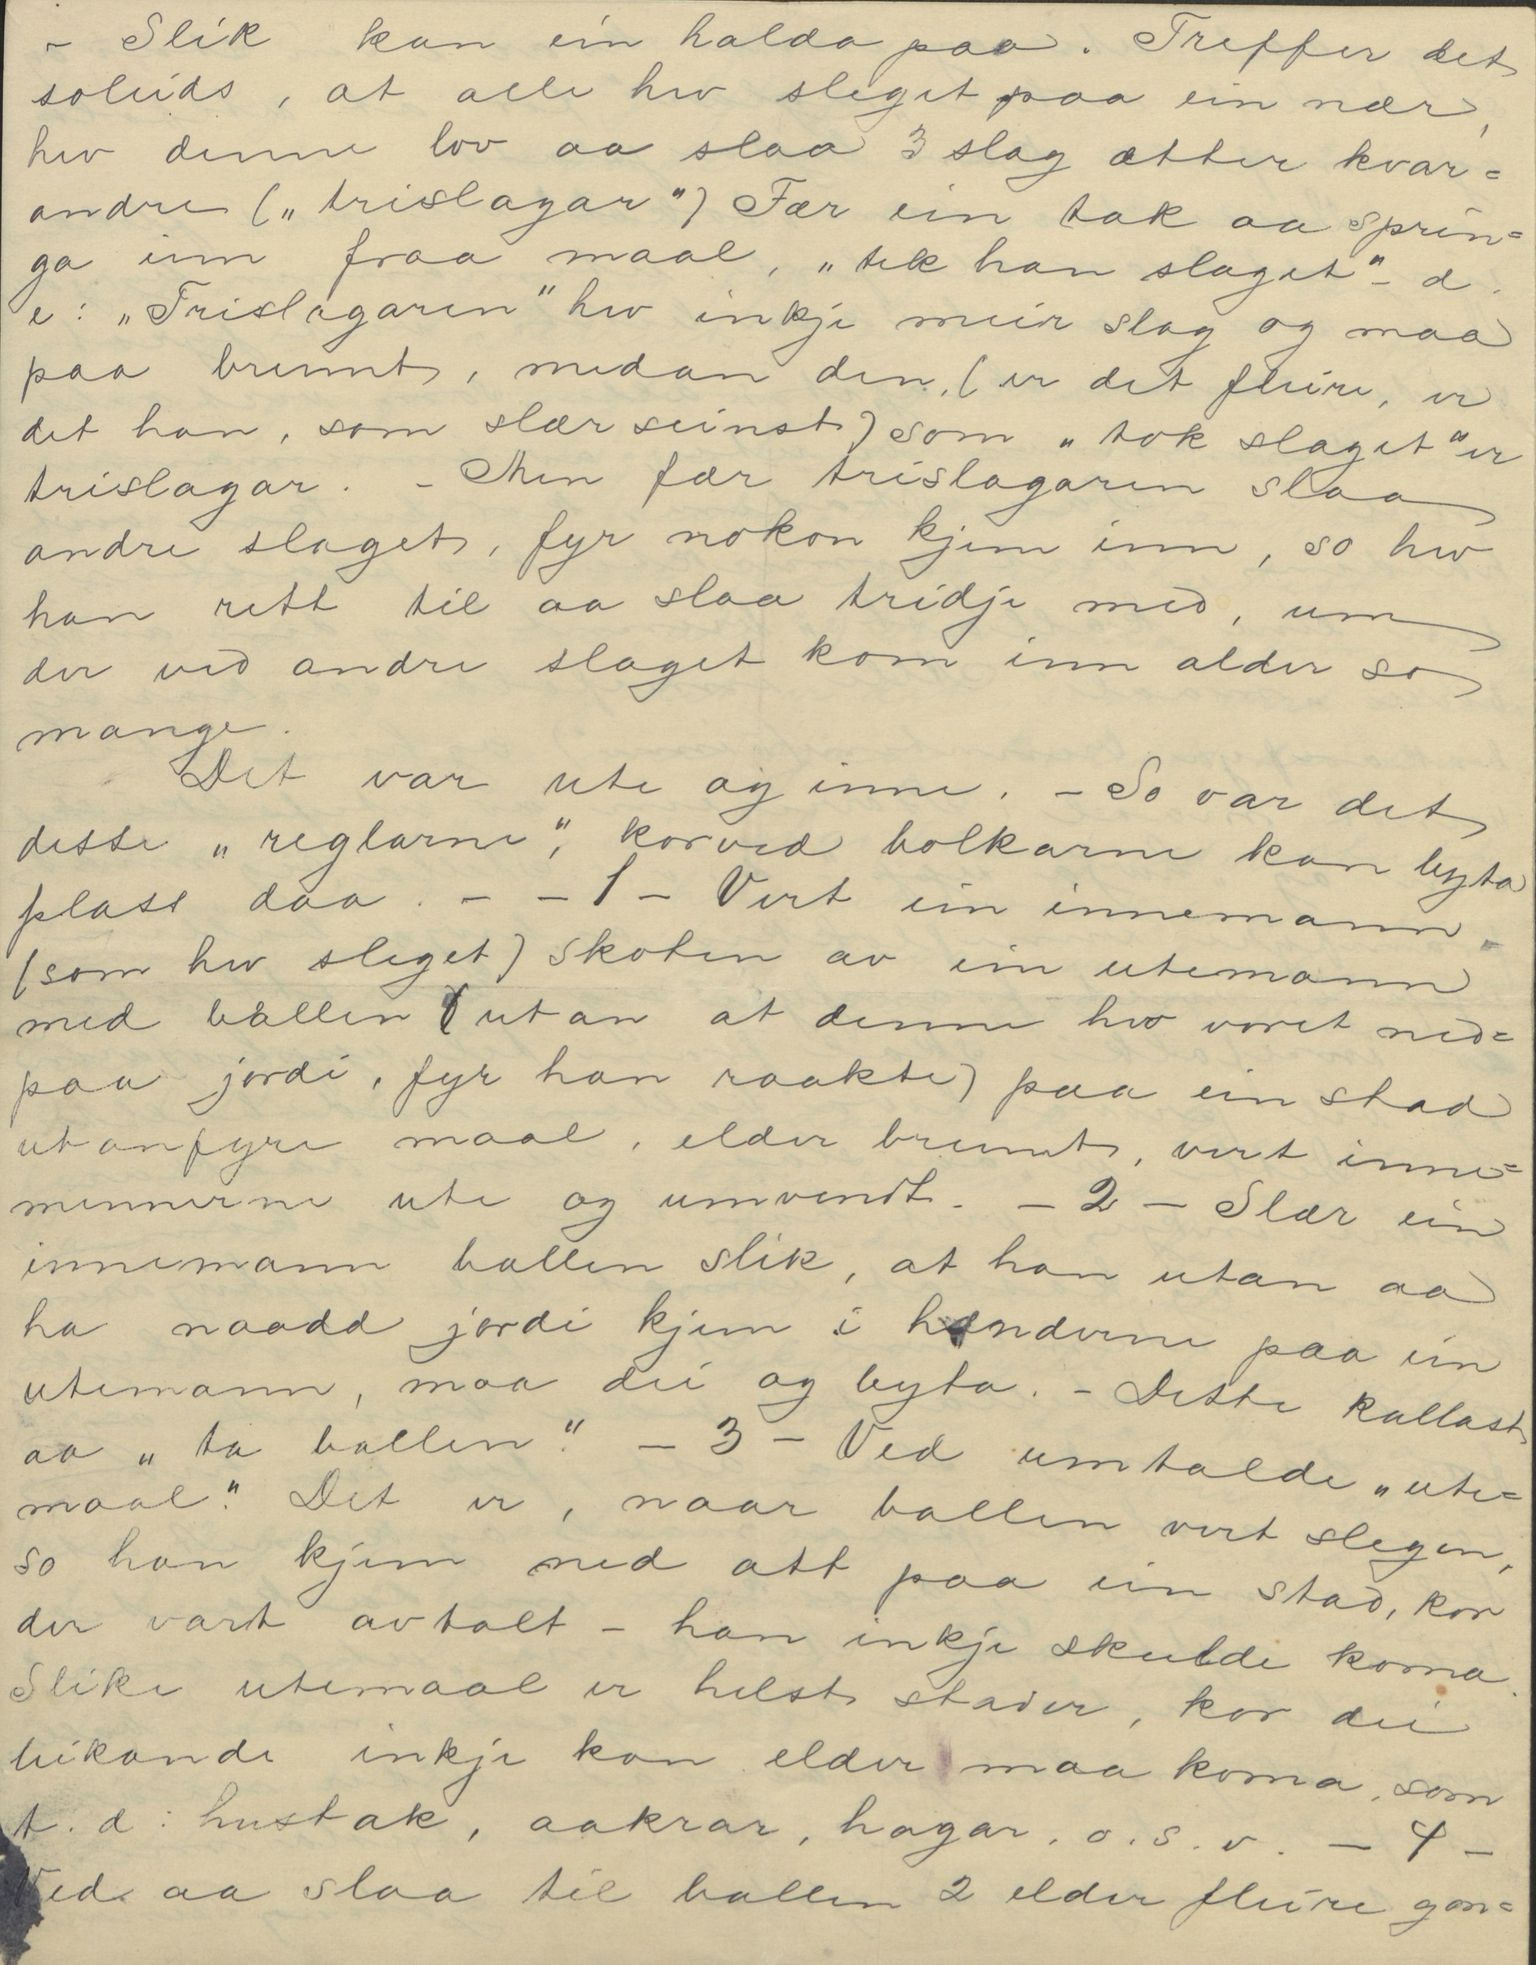 - Slik kan ein halda paa. Treffer det
soleids, at alle hev sleget paa ein nær,
hev denne lov aa slaa 3 slag etter kvar=
andre („trislagar") Fær ein tak aa sprin=
ga inn fraa maal, „tek han slaget" - d.
e: „Trislagaren" hev inkje meir slag og maa
paa brennt, medan den, (er det fleire, er
det han, som slær seinst) som „tok slaget" er
trislagar. - Men fær trislagaren slaa
andre slaget, fyr nokon kjem inn, so hev
han rett til aa slaa tridje med, um
der ved andre slaget kom inn alder so
mange.
Det var ute og inne. - So var det
desse „reglarne", korved bolkarne kan byta
plass daa. - - 1 - Vert ein innemann
(som hev sleget) skoten av ein utemann
med ballen (utan at denne hev voret ned=
paa jordi, fyr han raakte) paa ein stad
utanfyre maal, elder brennt, vert inne=
mennerne ute og umvendt. - 2 - Slær ein
innemann ballen slik, at han utan aa
ha naadd jordi kjem i henderne paa ein
utemann, maa dei og byta. - Dette kallast
aa „ta ballen". - 3 - Ved umtalde „ute=
maal". Det er, naar ballen vert slegen,
so han kjem ned att paa ein stad, kor
der vart avtalt - han inkje skulde koma.
Slike utemaal er helst stader, kor dei
leikande inkje kan elder maa koma, som
t. d: hustak, aakrar, hagar, o. s. v. - 4 -
Ved aa slaa til ballen 2 elder fleire gon=